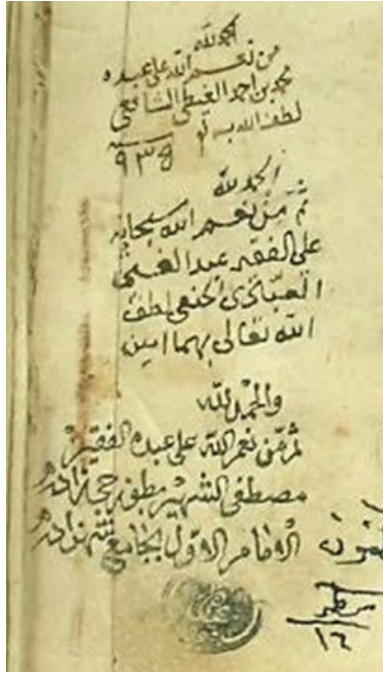 الحمد لله
من نعم الله على عبده
محمد بن احمد الغيطي الشافعي
لطف الله به
سنة ٩٣٥
الحمد لله
ثم من نعم الله سبحانه
على الفقير عبد الغني
الحنفي لطف
الله تعالى بهما امين
والحمد لله
ثم من نعم الله على عبده الفقير
مصطفى الشهير
الامام الاول بجامع شهزاده
١٢